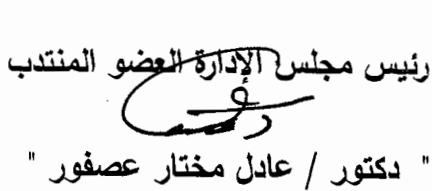 رئيس مجلس الإدارة العضو المنتدب
" دكتور / عادل مختار عصفور "